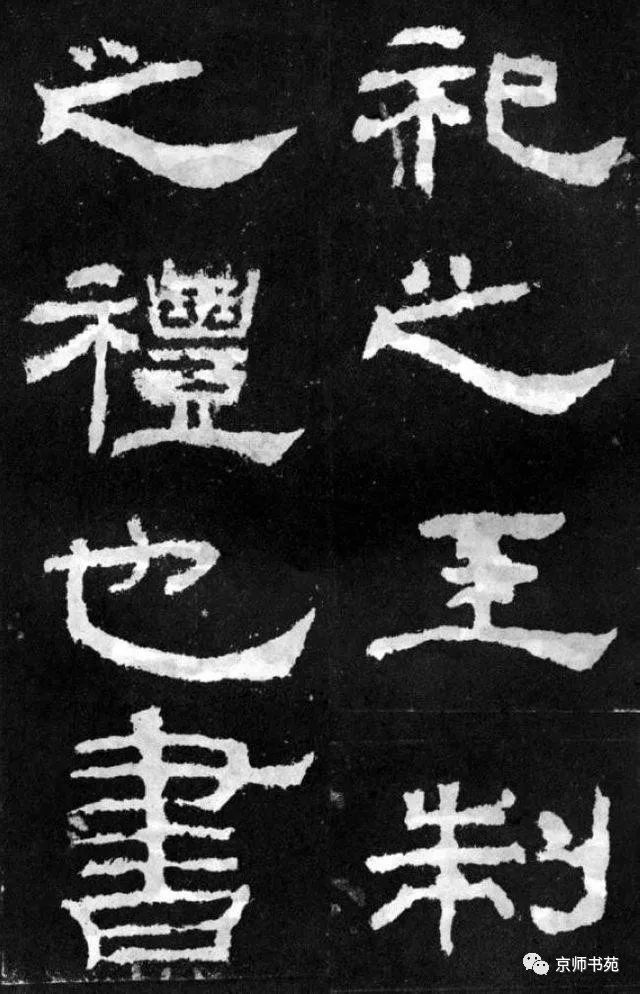 祀之王制
之禮也書
京师书苑